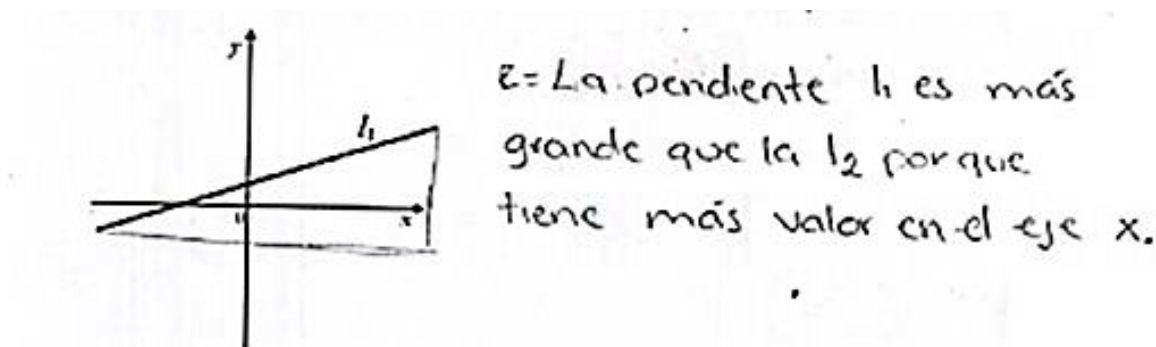 y
l₁
x
R= La pendiente l₁ es más
grande que la l₂ porque
tiene más valor en el eje x.